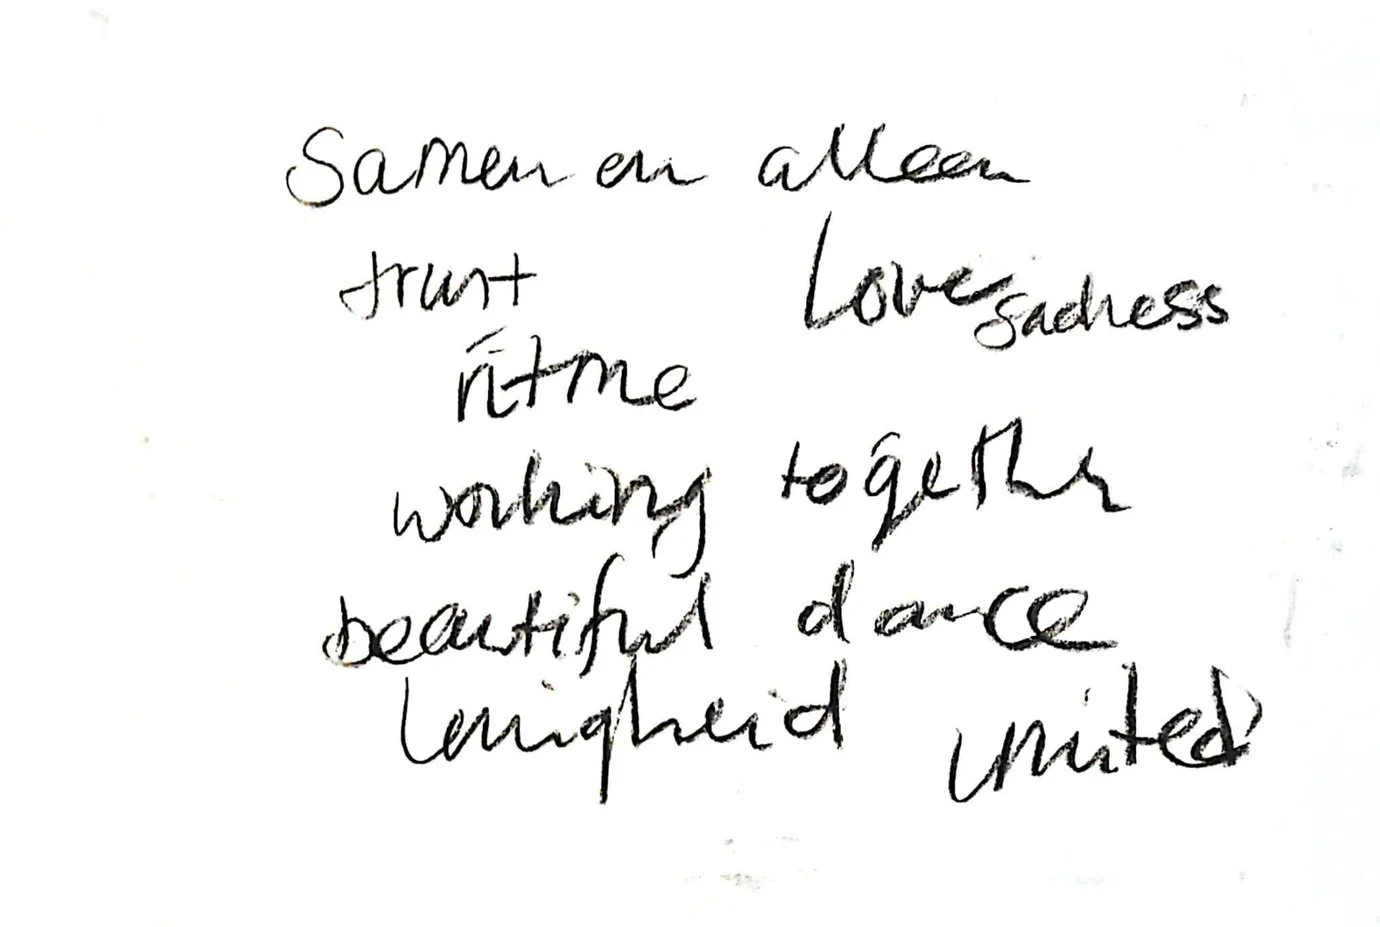 Samen en alleen
trust Love sadness
ritme
working together
beautiful dance
lenigheid united